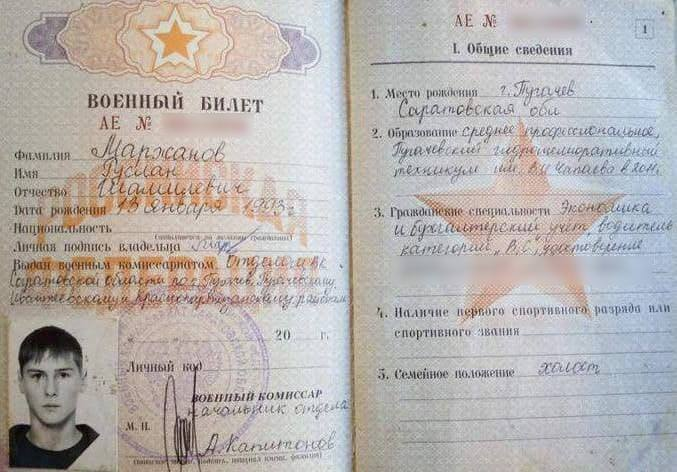 ВОЕННЫЙ БИЛЕТ
АЕ №
Фамилия Маржанов
Имя Руслан
Отчество Шамилевич
Дата рождения 13 января 1993г
Национальность
Личная подпись владельца
Выдан военным комиссариатом Отделом ВК
Саратовской области по г. Пугачёв, Пугачевскому,
Ивантеевскому и Краснопартизанскому районам
20 г.
Личный код
ВОЕННЫЙ КОМИССАР
Начальник отдела
М. П.
А. Капитонов
АЕ №
1
I. Общие сведения
1. Место рождения г. Пугачев
Саратовская обл
2. Образование среднее профессиональное,
Пугачевский гидромелиоративный
техникум им. В.И Чапаева в 2011г
3. Гражданские специальности Экономика
и бухгалтерский учет, водитель
категории „В, С", удостовереие
4. Наличие первого спортивного разряда или
спортивного звания
5. Семейное положение холост